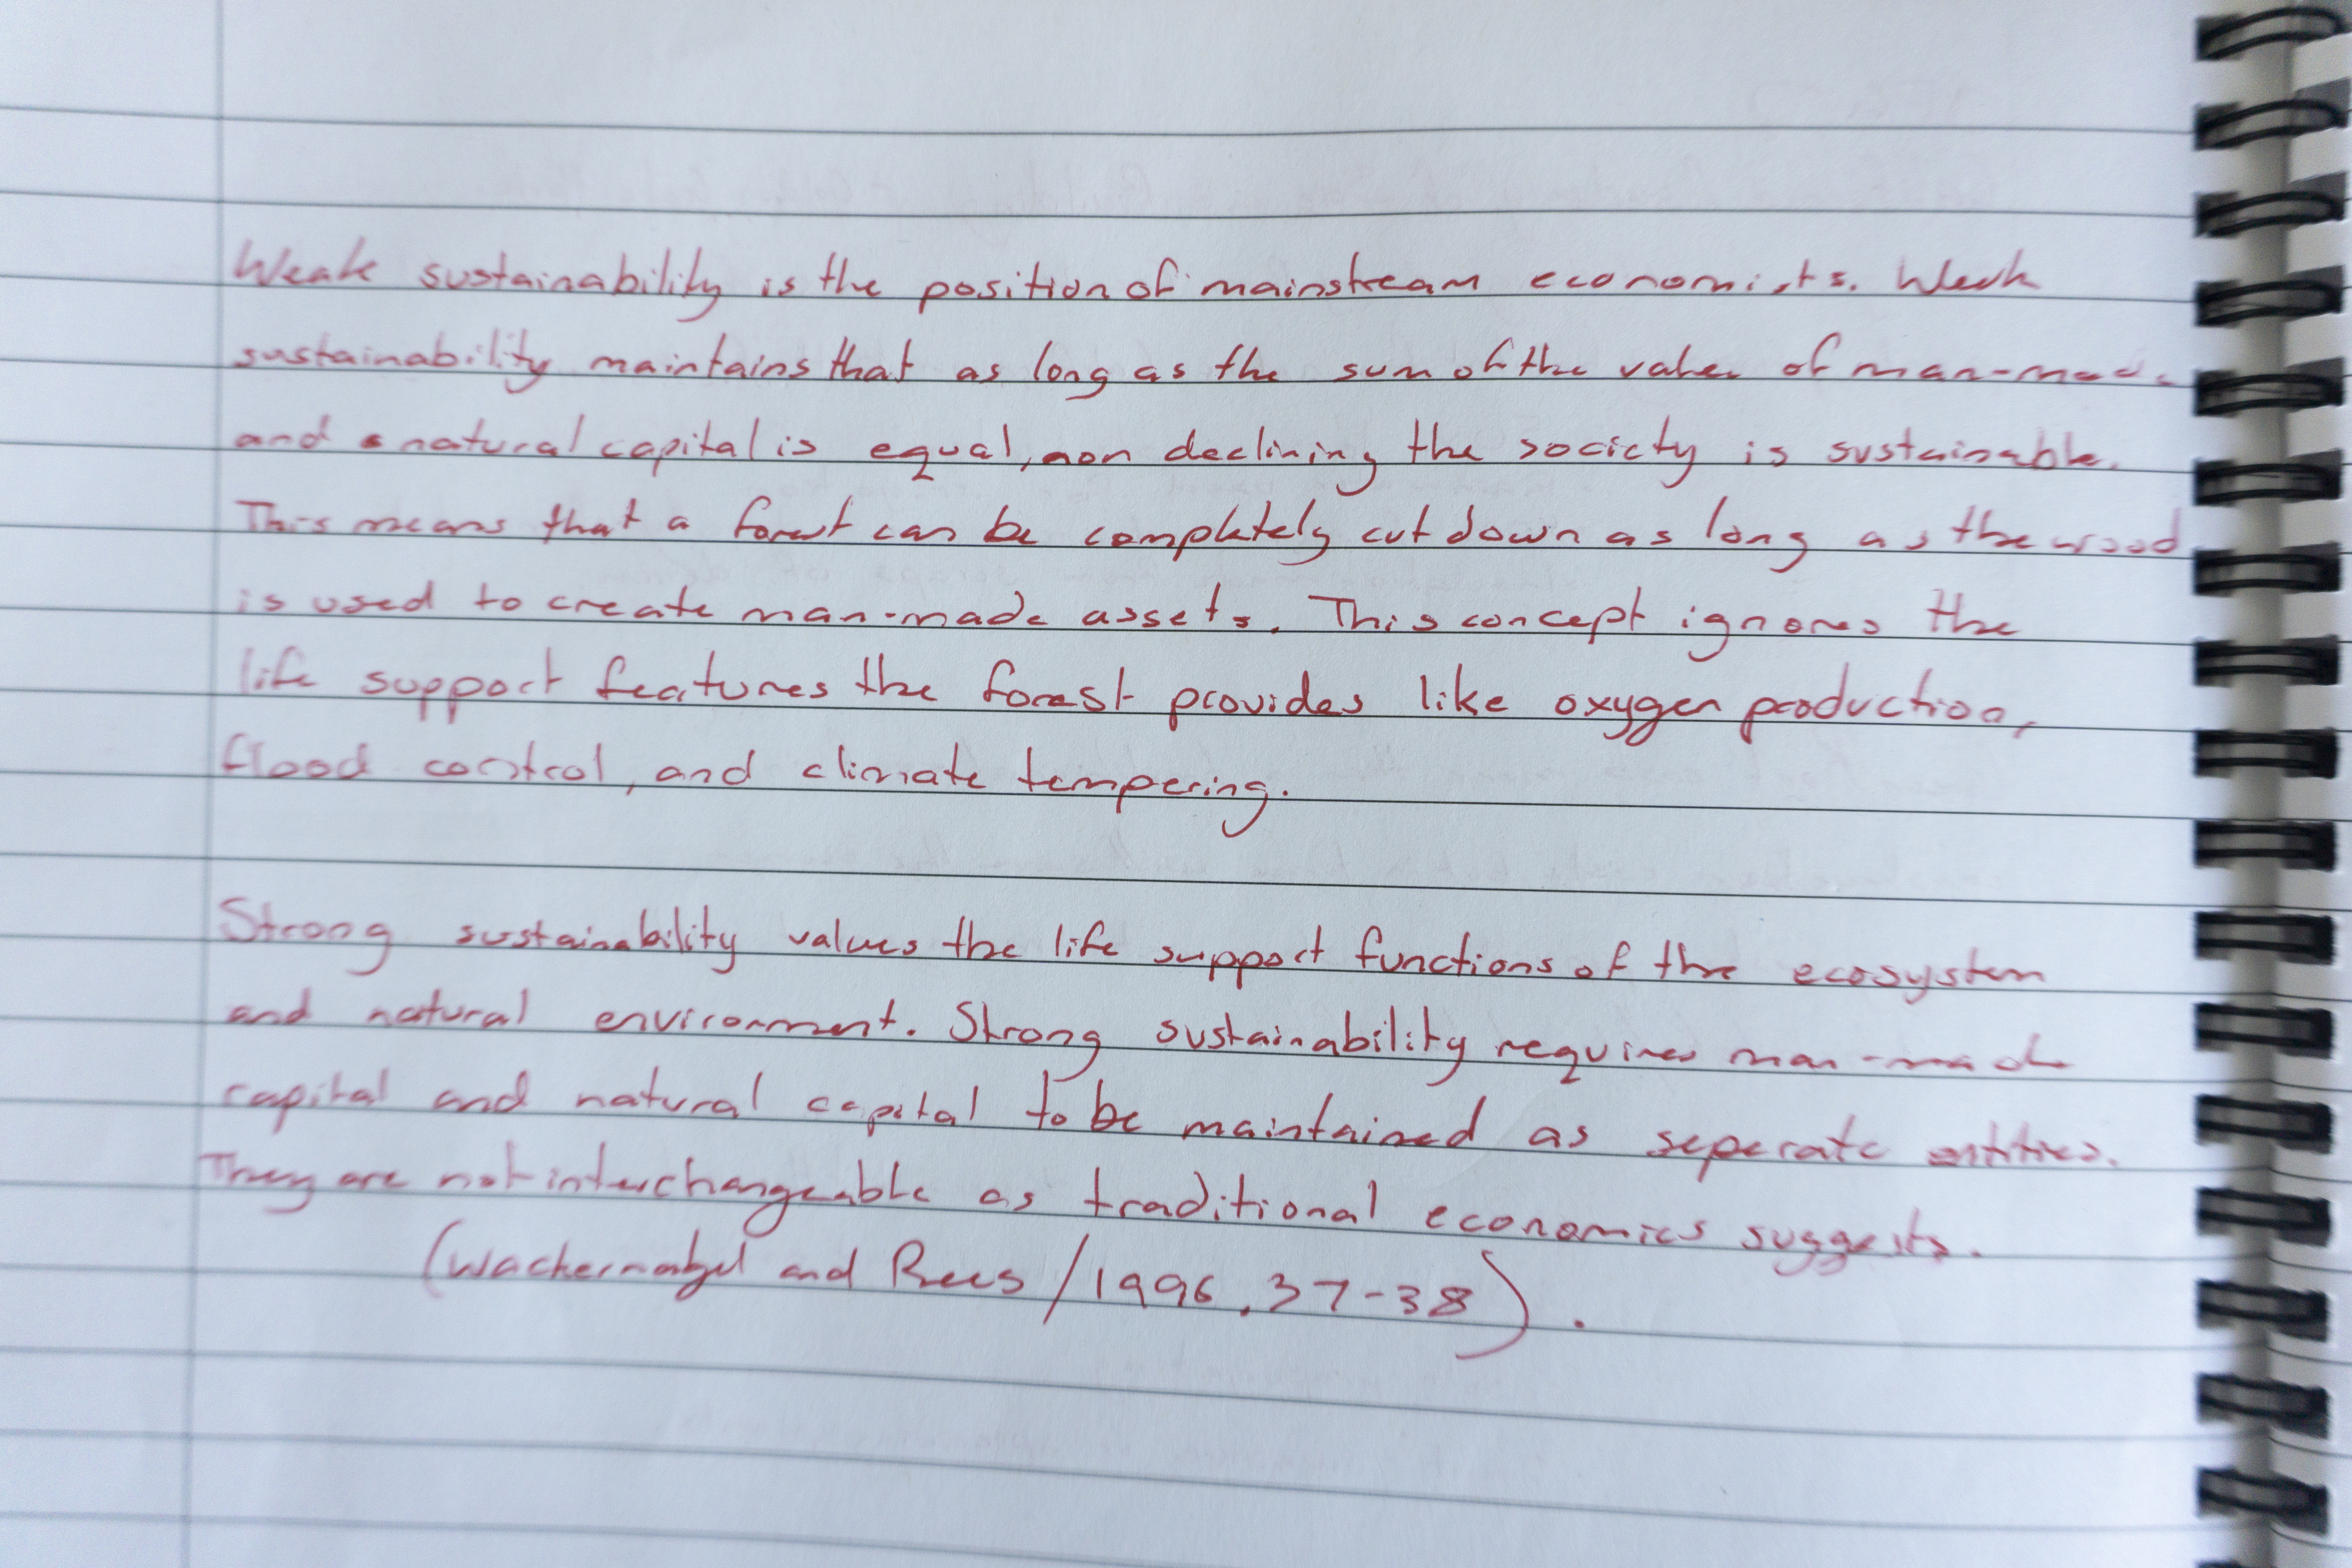 Weak sustainability is the position of mainstream economists. Weak
sustainability maintains that as long as the sum of the value of man-made
and natural capital is equal, non declining the society is sustainable.
This means that a forest can be completely cut down as long as the wood
is used to create man-made assets. This concept ignores the
life support features the forest provides like oxygen production,
flood control, and climate tempering.
Strong sustainability values the life support functions of the ecosystem
and natural environment. Strong sustainability requires man-made
capital and natural capital to be maintained as seperate entities.
They are not interchangeable as traditional economics suggests.
(Wackernabel and Rees / 1996, 37-38).